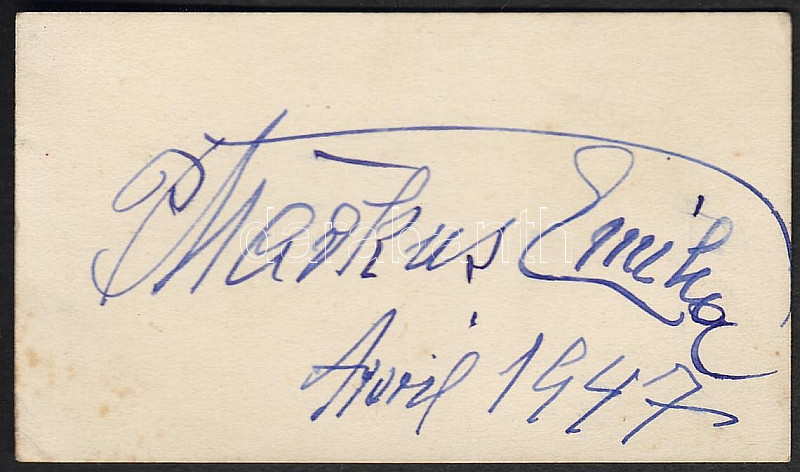 P Márkus Emilia
April 1947
darabanth